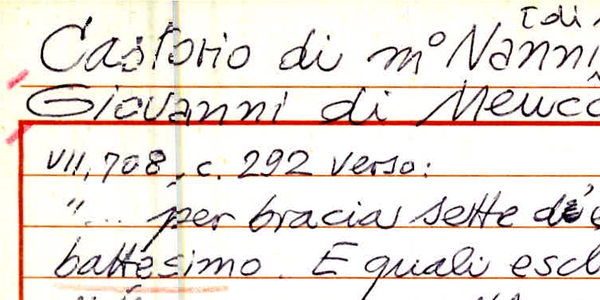 [di
Castorio di m° Nanni
Giovanni di Meuc
VII, 708, c. 292 verso:
"... per bracia sette
battesimo. E quali escl